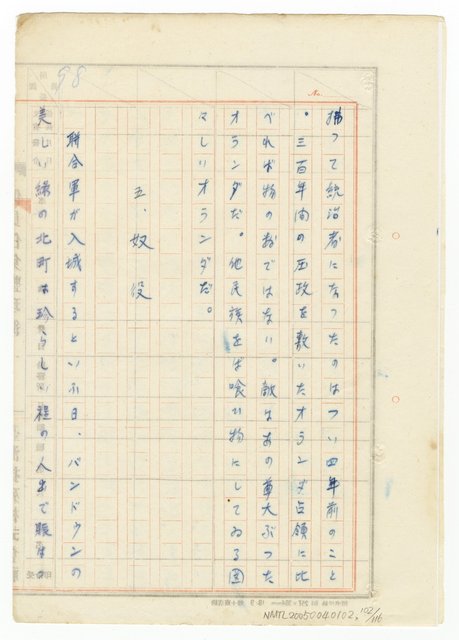 98
No.
拂って統治者になったのはつい四年前のこと
。三百年間の圧政を敷いたオランダ占領に比
べれば物の数ではない。敵はあの尊大ぶった
オランダだ。他民族をば喰ひ物にしてゐる図
々しいオランダだ。
五、奴役
聯合軍が入城するといふ日、バンドウンの
美しい緑の北町は珍らしい程の人出で賑はひ
NMTL20050040102, 102/116